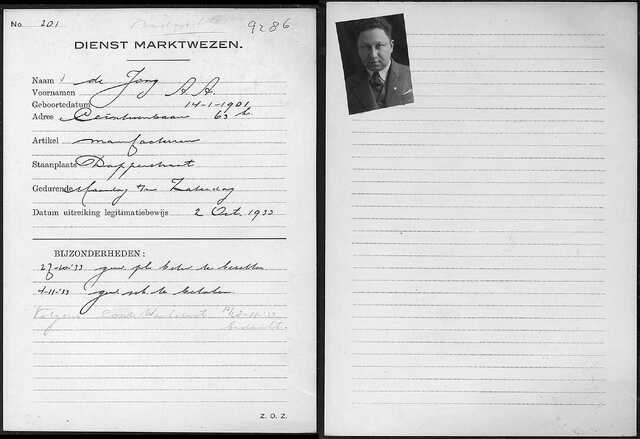 No. 201 9286
DIENST MARKTWEZEN.
Naam de Jong
Voornamen A. A.
Geboortedatum 14-1-1901
Adres Ceintuurbaan 63
Artikel manufacturen
Staanplaats Dapperstraat
Gedurende Maandag t/m Zaterdag
Datum uitreiking legitimatiebewijs 2 Oct. 1933
BIJZONDERHEDEN:
27-10-'33 geen pl. te bezetten
4-11-'33 te betalen
Volgens
Z. O. Z.